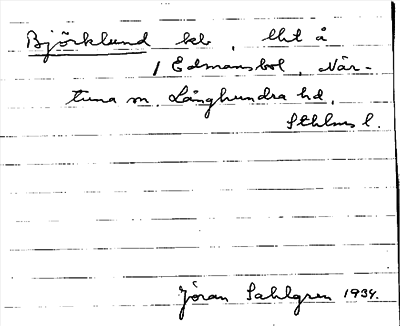 Björklund kb, lht å
1 Edmansbol, När-
tuna sn. Långhundra hd.
Sthlms l.
Jöran Sahlgren 1934.